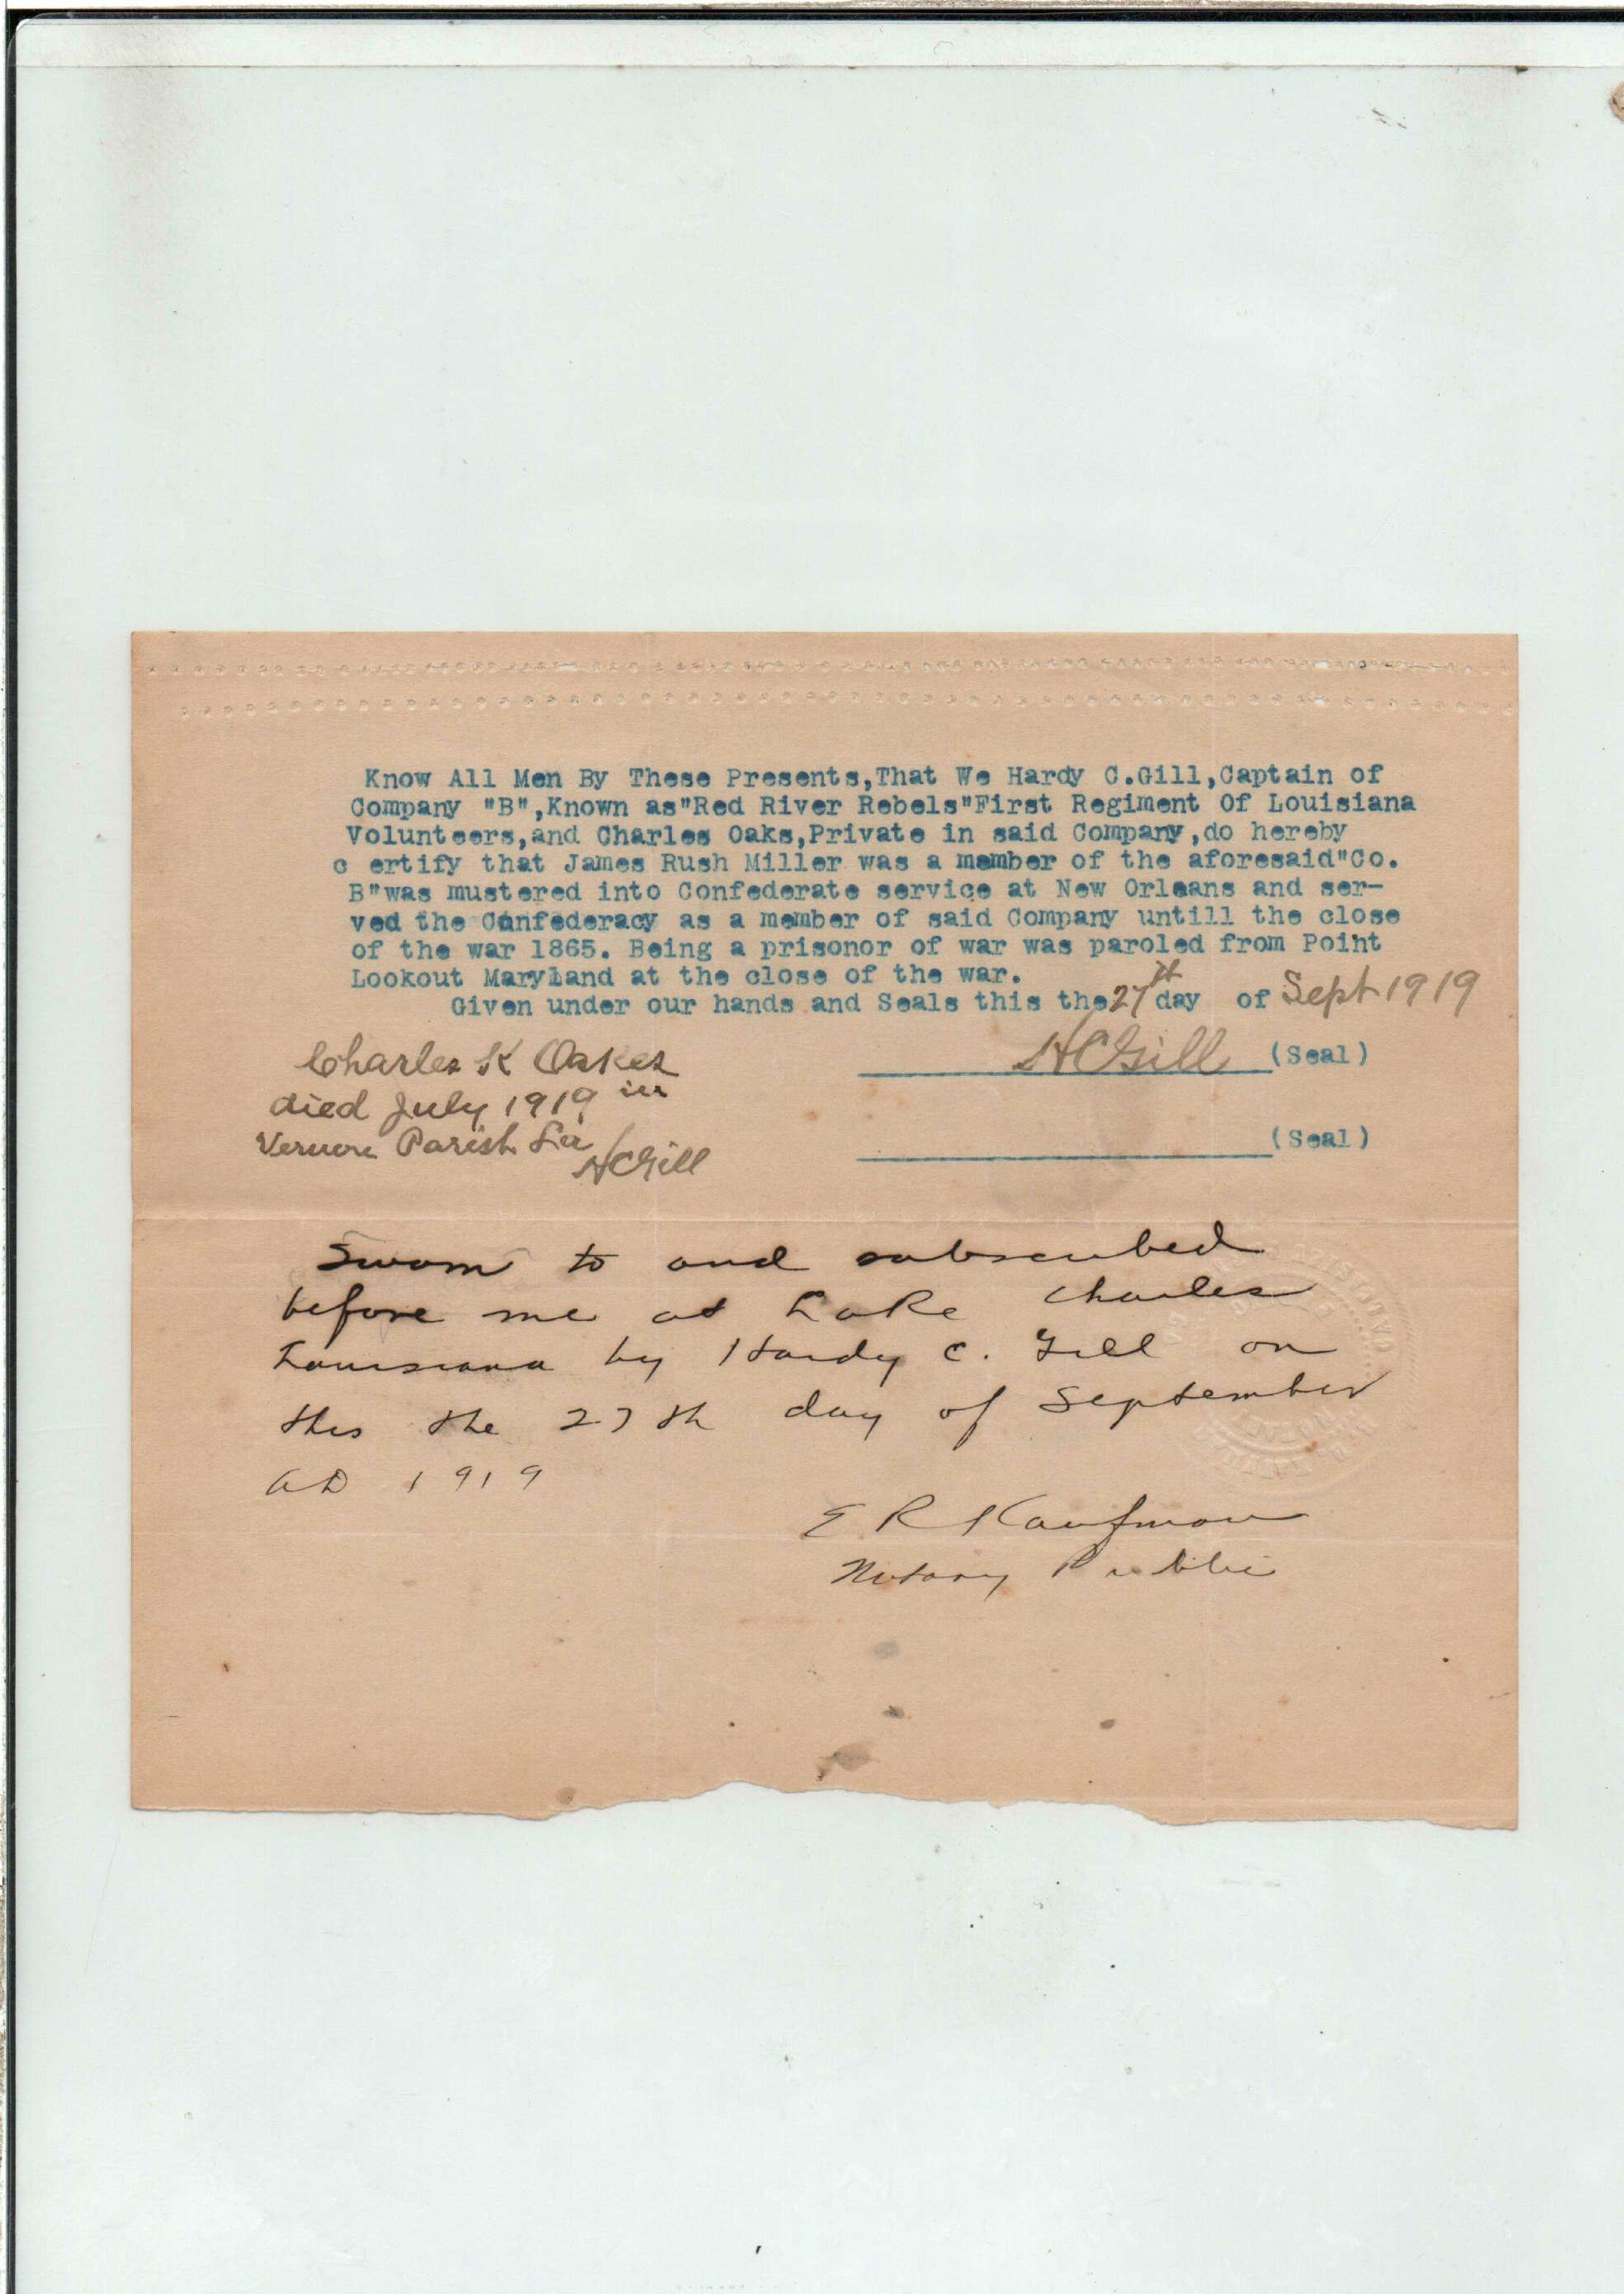 Know All Men By These Presents,That We Hardy C.Gill,Captain of
Company "B",Known as"Red River Rebels"First Regiment Of Louisiana
Volunteers,and Charles Oaks,Private in said Company,do hereby
c ertify that James Rush Miller was a member of the aforesaid"Co.
B"was mustered into Confederate service at New Orleans and ser-
ved the Confederacy as a member of said Company untill the close
of the war 1865. Being a prisonor of war was paroled from Point
Lookout Maryland at the close of the war.
Given under our hands and Seals this the 27th day of Sept 1919
HCGill (Seal)
Charles K Oakes
died July 1919 in
Vernon Parish La
HCGill
(Seal)
Sworn to and subscribed
before me at Lake Charles
Louisiana by Hardy C. Gill on
this the 27th day of September
AD 1919
E R Kaufman
Notary Public